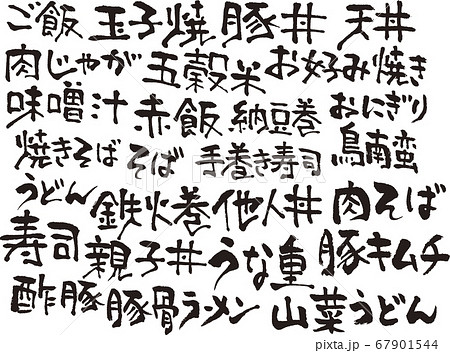 ご飯 玉子焼 豚丼 天丼
肉じゃが 五穀米 お好み焼き
味噌汁 赤飯 納豆巻 おにぎり
焼きそば そば 手巻き寿司 鳥南蛮
うどん 鉄火巻 他人丼 肉そば
寿司 親子丼 うな重 豚キムチ
酢豚 豚骨ラーメン 山菜うどん
pixta.jp - 67901544